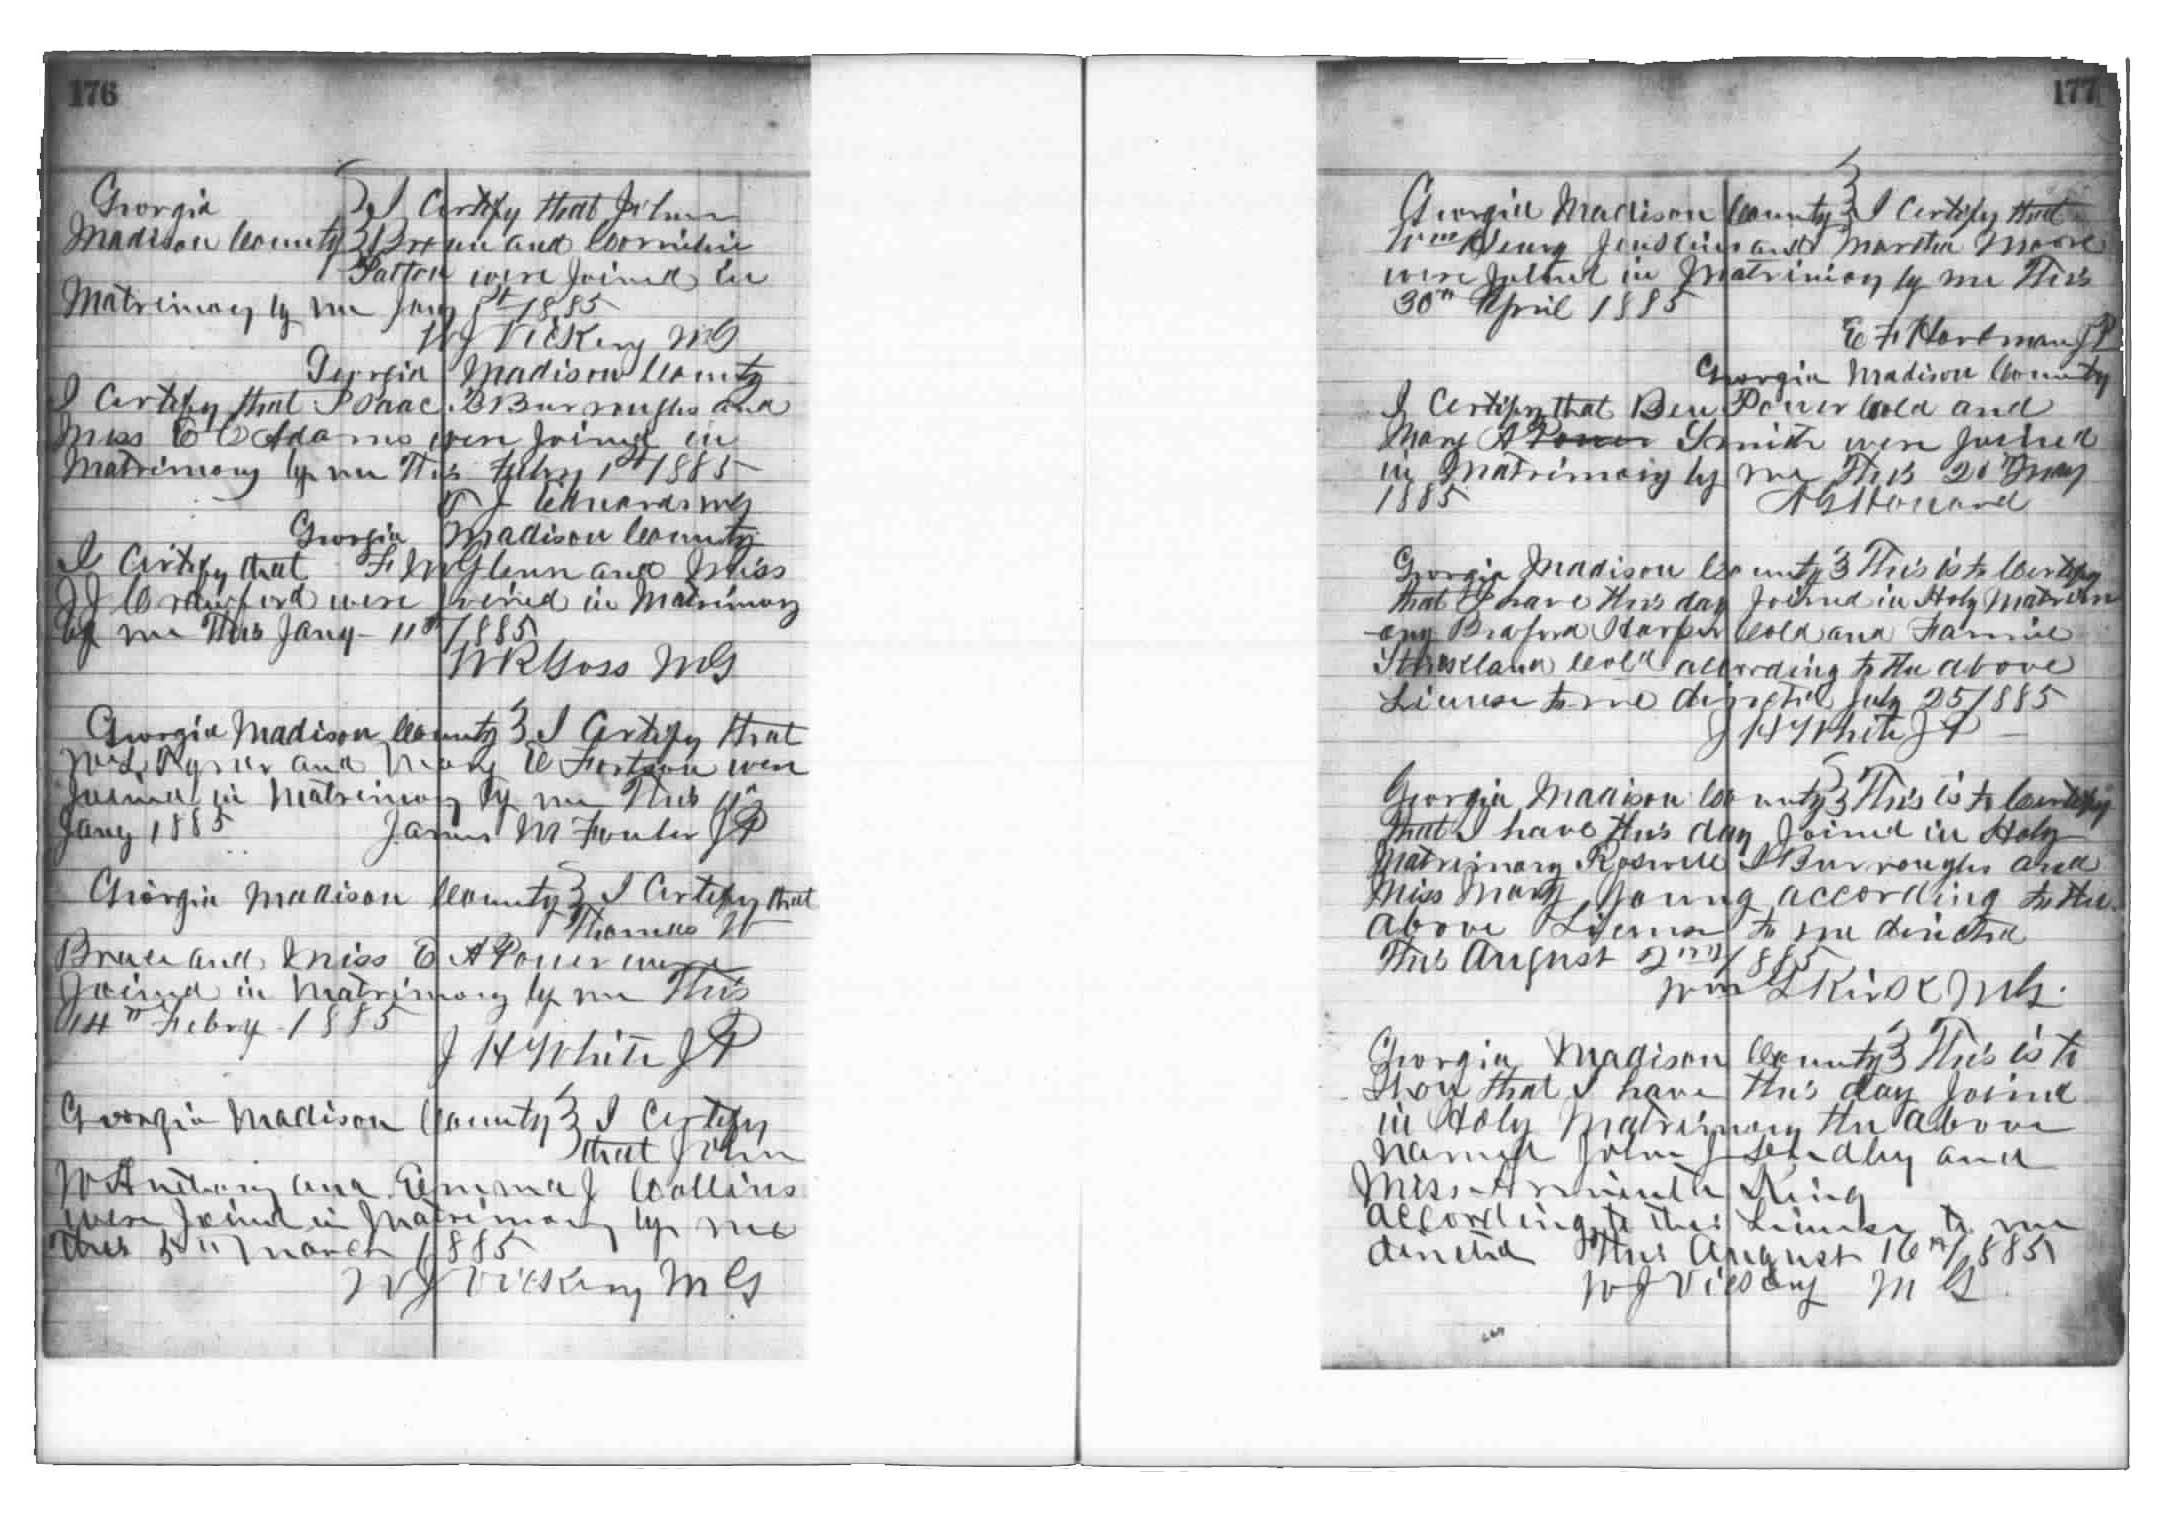 176
Georgia } I Certify that John
Madison County } Brown and Cornelia
Patton were Joined in
Matrimony by me Jany 1st 1885
W J Vickery M G
Georgia Madison County
I Certify that Isaac B Burroughs and
Miss E C Adams were Joined in
Matrimony by me This Febry 1st 1885
J Edwards M G
Georgia Madison County
I Certify that F M Glenn and Miss
J J Crawford were Joined in Matrimony
by me This Jany 11th 1885
W R Goss M G
Georgia Madison County } I Certify that
and Mary E Fortson were
Joined in Matrimony by me This
Jany 1885 James M Fowler J P
Georgia Madison County } I Certify that
Thomas W
Bruce and Miss E A Power were
Joined in Matrimony by me This
14th Febry 1885
J H White J P
Georgia Madison County } I Certify
that John
W Anthony and Emma J Collins
were Joined in Matrimony by me
This 5th March 1885
W J Vickery M G
177
Georgia Madison County } I Certify that
Wm Henry Jenkins and Martha Moore
were Joined in Matrimony by me This
30th April 1885
E F Hartman J P
Georgia Madison County
I Certify that Ben Power Cold and
Mary A Power Smith were Joined
in Matrimony by me This 20 May
1885 A G Howard
Georgia Madison County } This is to Certify
that I have this day Joined in Holy Matrim
ony Braford Harper Cold and Fannie
Strickland Col'd according to the above
License to me directed July 25 1885
J H White J P
Georgia Madison County } This is to Certify
that I have this day Joined in Holy
Matrimony Roswell I Burroughs and
Miss Mary Young according to the
above License to me directed
This August 2nd 1885
Wm L Kirk M G.
Georgia Madison County } This is to
Show that I have this day Joined
in Holy Matrimony the above
named John J and
Miss Arminta King
according to this License to me
directed This August 16th 1885
W J Vickery M G